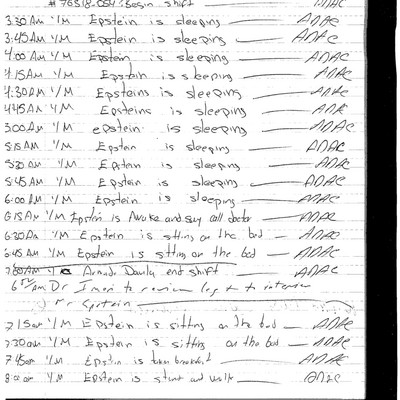 #76318-054 Begin shift ADAC
3:30 AM I/M Epstein is sleeping — ADAC
3:45 AM I/M Epstein is sleeping — ADAC
4:00 AM I/M Epstein is sleeping — ADAC
4:15 AM I/M Epstein is sleeping — ADAC
4:30 AM I/M Epsteins is sleeping — ADAC
4:45 AM I/M Epsteins is sleeping — ADAC
5:00 AM I/M epstein is sleeping — ADAC
5:15 AM I/M Epstein is sleeping — ADAC
5:30 AM I/M Epstein is sleeping — ADAC
5:45 AM I/M Epstein is sleeping — ADAC
6:00 AM I/M Epstein is sleeping — ADAC
6:15 AM I/M Epstein is Awake and say call doctor — ADAC
6:30 AM I/M Epstein is sitting on the bed — ADAC
6:45 AM I/M Epstein is sitting on the bed — ADAC
7:00 AM end shift — ADAC
Dr to review log + to interview
Mr Epstein
7:15 am I/M Epstein is sitting on the bed — ADAC
7:30 AM I/M Epstein is sitting on the bed — ADAC
7:45 am I/M Epstein is taken breakfast — ADAC
8:00 am I/M Epstein is stand and walk — ADAC